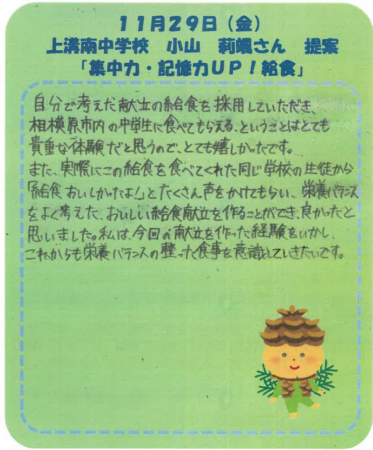 11月29日（金）
上溝南中学校　小山　莉颯さん　提案
「集中力・記憶力UP！給食」
自分で考えた献立の給食を採用していただき、
相模原市内の中学生に食べてもらえる、ということはとても
貴重な体験だと思うので、とても嬉しかったです。
また、実際にこの給食を食べてくれた同じ学校の生徒から
「給食おいしかったよ！」とたくさん声をかけてもらい、栄養バランス
をよく考えた、おいしい給食献立を作ることができ、良かったと
思いました。私は、今回の献立を作った経験をいかし、
これからも栄養バランスの整った食事を意識していきたいです。